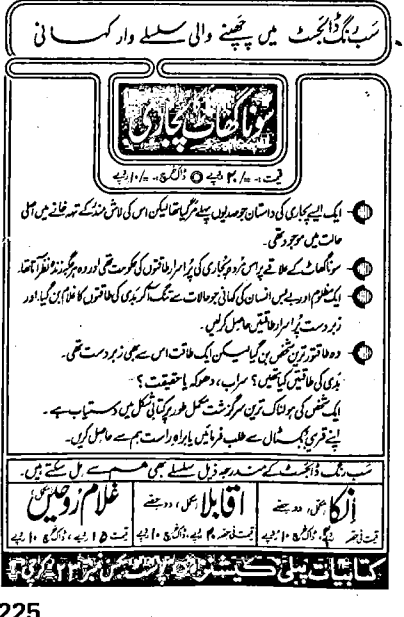 سب رنگ ڈائجسٹ میں چھپنے والی سلسلے وار کہانی
سونا گھاٹ کا پجاری
قیمت :- /۲۰ روپے ڈاک خرچ :- /۱۰ روپے
ایک ایسے پجاری کی داستان جو صدیوں پہلے مر گیا تھا لیکن اس کی لاش مندر کے تہہ خانے میں اصلی
حالت میں موجود تھی۔
سونا گھاٹ کے علاقے پر اس مردہ پجاری کی پراسرار طاقتوں کی حکومت تھی اور وہ ہر جگہ زندہ نظر آتا تھا۔
ایک مظلوم اور بے بس انسان کی کہانی جو حالات سے تنگ آکر بدی کی طاقتوں کا غلام بن گیا، اور
زبردست پراسرار طاقتیں حاصل کر لیں۔
وہ طاقتور ترین شخص بن گیا لیکن ایک طاقت اس سے بھی زبردست تھی۔
بدی کی طاقتیں کیا تھیں؟ سراب، دھوکہ یا حقیقت؟
ایک شخص کی ہولناک ترین سرگزشت مکمل طور پر کتابی شکل میں دستیاب ہے۔
اپنے قریبی بکسٹال سے طلب فرمائیں یا براہ راست ہم سے حاصل کریں۔
سب رنگ ڈائجسٹ کے مندرجہ ذیل سلسلے بھی ہم سے مل سکتے ہیں۔
انکا مکمل، دو حصے
قیمت فی حصہ ڈاک خرچ ۱۰ روپے
اقابلا مکمل، دو حصے
قیمت فی حصہ ۲۰ روپے، ڈاک خرچ ۱۰ روپے
غلام روحیں مکمل
قیمت ۱۵ روپے، ڈاک خرچ ۱۰ روپے
کتابیات پبلی کیشنز پوسٹ بکس نمبر ۲۳ کراچی
225